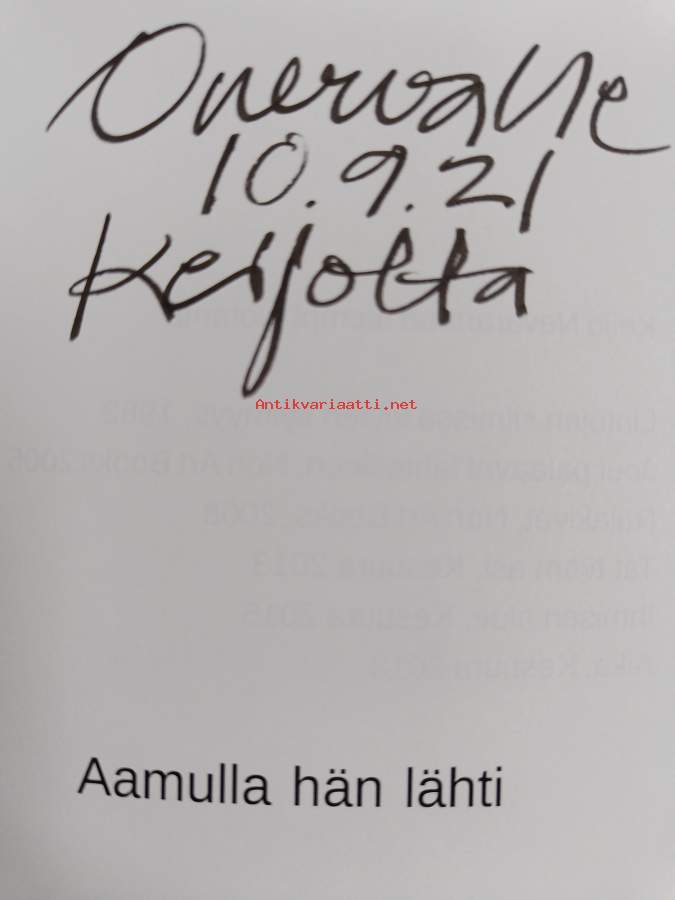 Onervalle
10.9.21
Keijolta
Antikvariaatti.net
Aamulla hän lähti